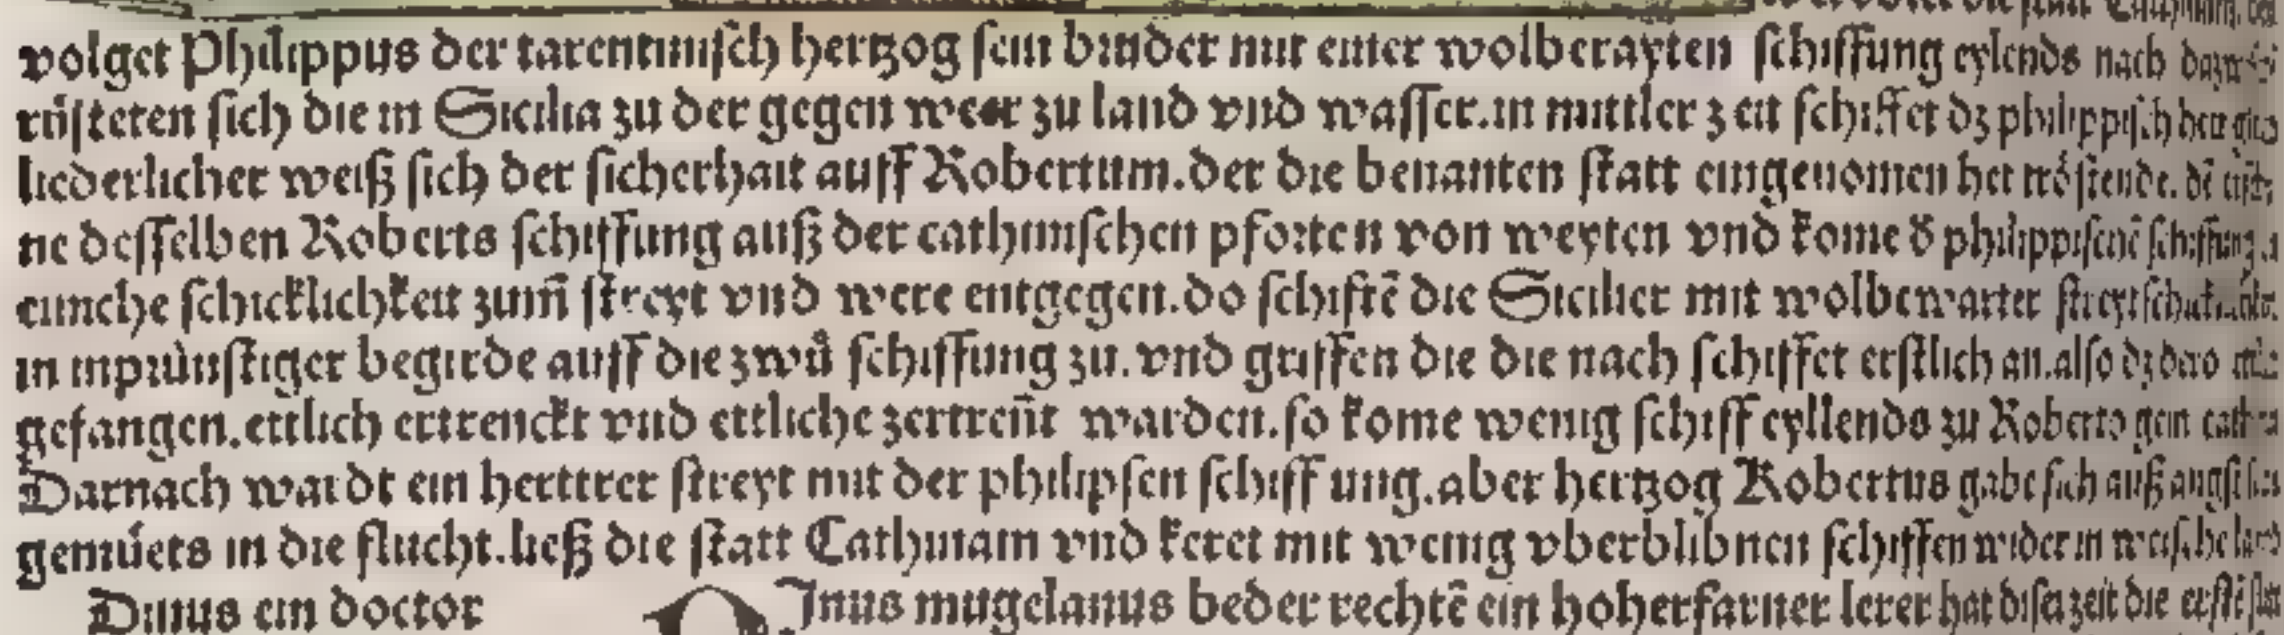 die statt
volget Philippus der tarentinisch hertzog sein bruder mit einer wolberayten schiffung eylends nach
rüsteten sich die in Sicilia zu der gegen weer zu land vnd wasser.in mittler zeit schiffet dz philippisch her
liederlicher weiß sich der sicherhait auff Robertum.der die benanten statt eingenomen het tröstende.
ne desselben Roberts schiffung auß der cathinischen pforten von weyten vnd kome d philippischē schiffung
eimche schicklichkeit zum̄ streyt vnd were entgegen.do schiftē die Sicilier mit wolbewarter
in inprünstiger begirde auff die zwů schiffung zu.vnd griffen die die nach schiffet erstlich an.also dz dero
gefangen.ettlich ertrenckt vnd ettliche zertreñt warden.so kome wenig schiff eyllends zu Roberto gein
Darnach wardt ein herttrer streyt mit der philipsen schiff ung.aber hertzog Robertus gabe sich auß angst
gemüets in die flucht.ließ die statt Cathinam vnd keret mit wenig vberblibnen schiffen wider in
Dinus ein doctor
Inus mugelanus beder rechtē ein hoherfarner lerer hat diser zeit die